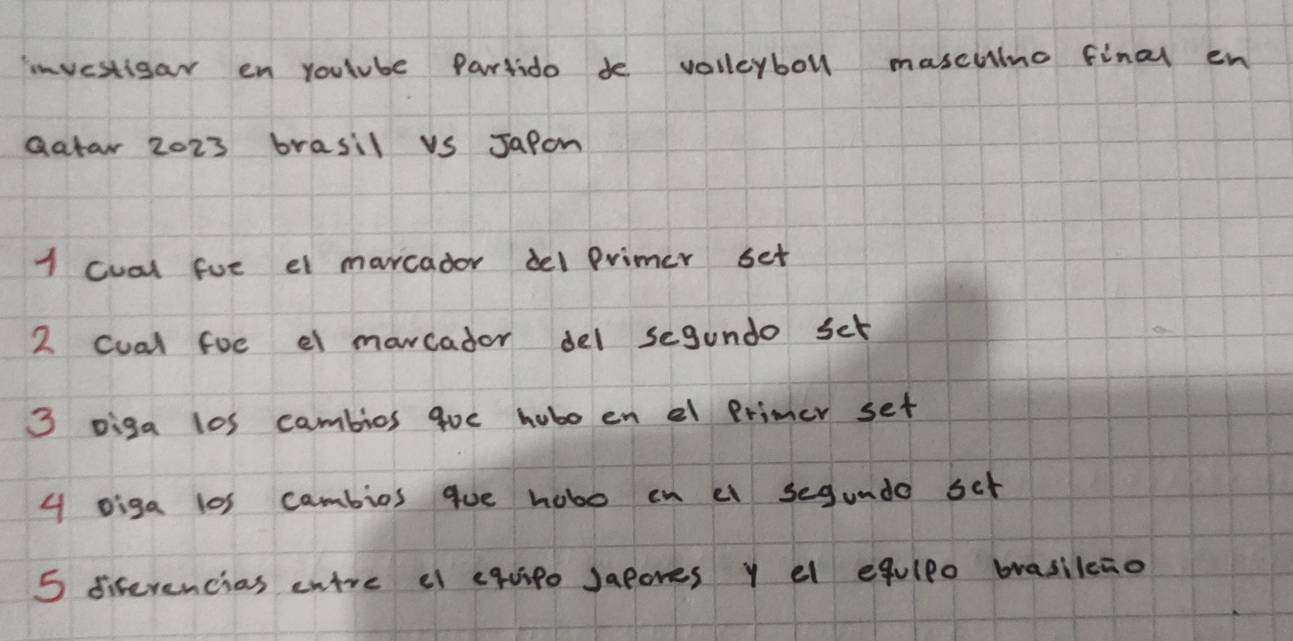 investigar en youtube Partido de volleyboll masculino final en
Qatar 2023 brasil vs Japon
1 cual fue el marcador del Primer set
2 cual fue el marcador del segundo set
3 Diga los cambios que hubo en el Primer set
4 Diga los cambios que hubo en el segundo set
5 diferencias entre el equipo Japones y el equipo brasileño